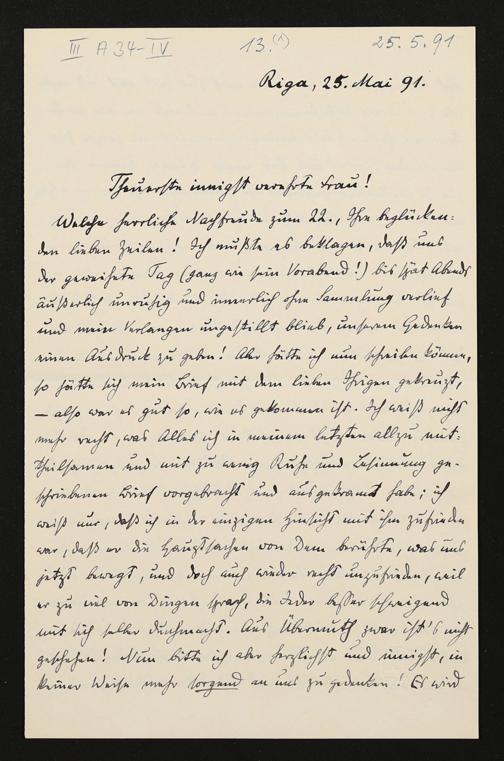 III A 34-IV 13.(1) 25.5.91
Riga, 25. Mai 91.
Theuerste innigst verehrte Frau!
Welche herrliche Nachfreude zum 22., Ihre beglücken=
den lieben Zeilen! Ich mußte es beklagen, daß uns
der geweihete Tag (ganz wie sein Vorabend!) bis spät Abends
äußerlich unruhig und innerlich ohne Sammlung verlief
und mein Verlangen ungestillt blieb, unserem Gedenken
einen Ausdruck zu geben! Aber hätte ich nun schreiben können,
so hätte sich mein Brief mit dem lieben Ihrigen gekreuzt,
— also war es gut so, wie es gekommen ist. Ich weiß nicht
mehr recht, was Alles ich in meinem letzten allzu mit=
theilsamen und mit zu wenig Ruhe und Besinnung ge-
schriebenen Brief vorgebracht und ausgekramt habe; ich
weiß nur, daß ich in der einzigen Hinsicht mit ihm zufrieden
war, daß er die Hauptsachen von Dem berührte, was uns
jetzt bewegt, und doch auch wieder recht unzufrieden, weil
er zu viel von Dingen sprach, die Jeder besser schweigend
mit sich selber durchmacht. Aus Übermuth zwar ist's nicht
geschehen! Nun bitte ich aber herzlichst und innigst, in
keiner Weise mehr sorgend an uns zu gedenken! Es wird